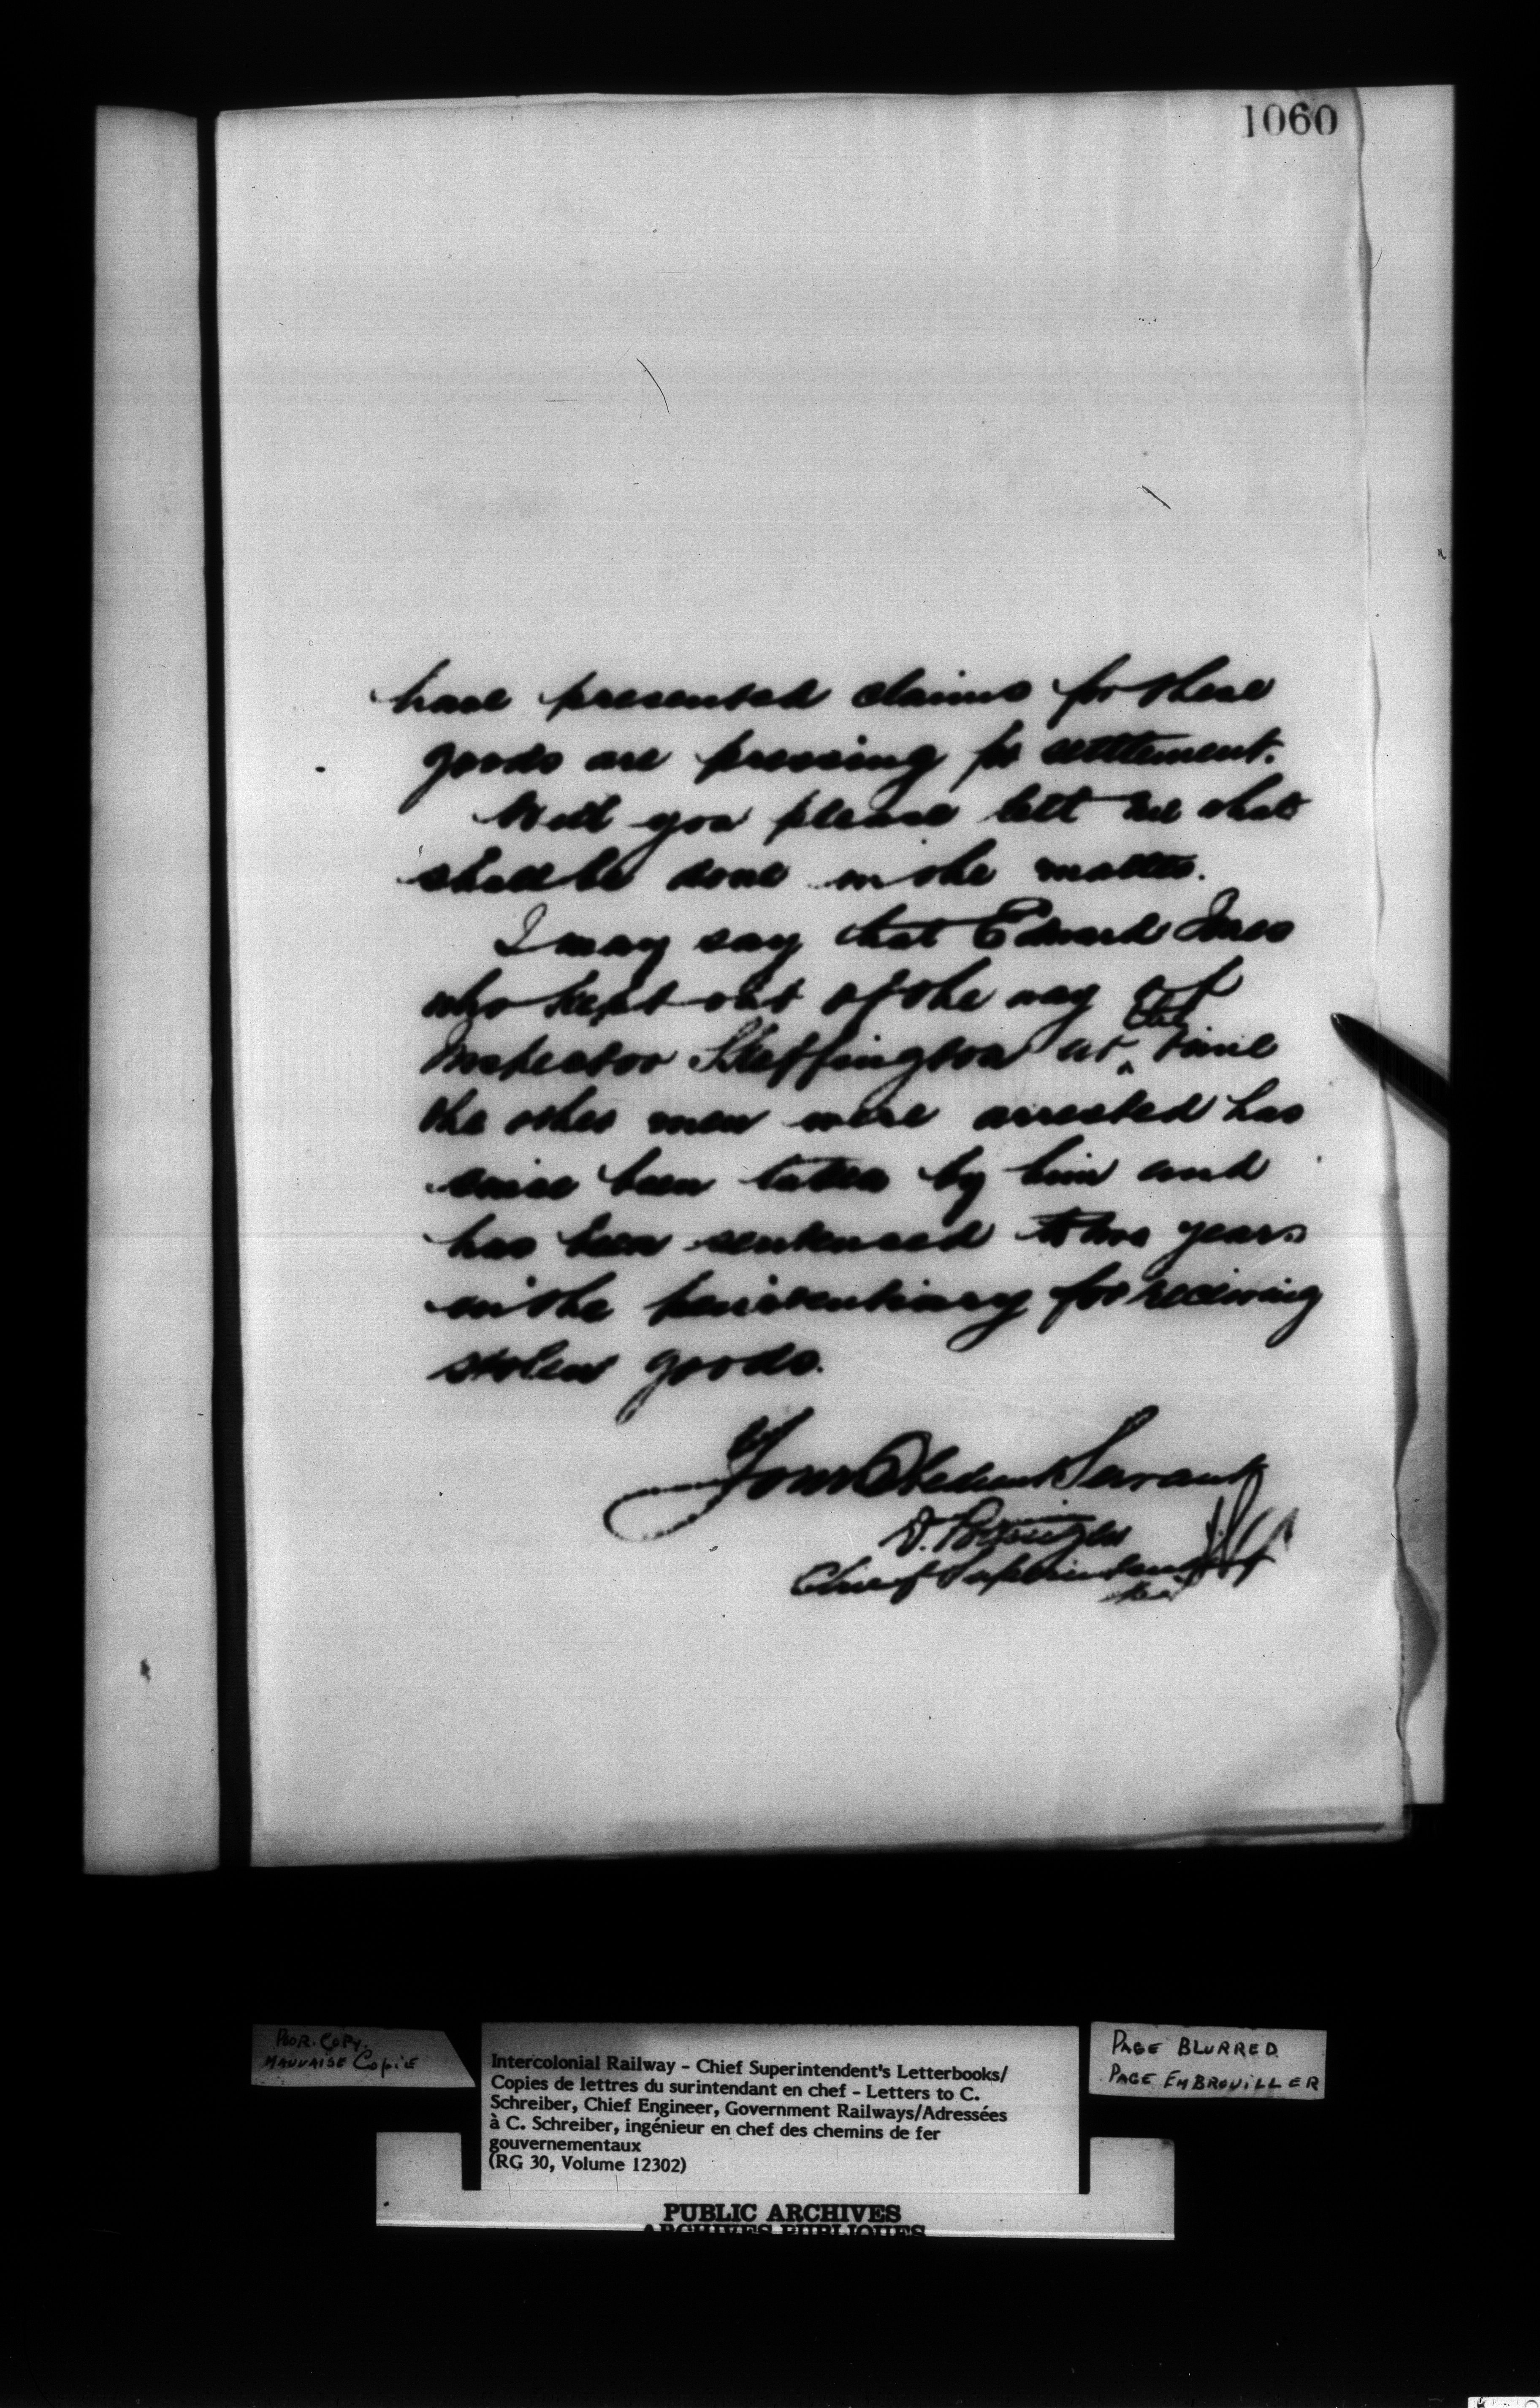 1060
have presented claims for these
goods are pressing for settlement.
Will you please tell me what
shall be done in the matter.
I may say that Edward Jones
who kept out of the way of
Inspector Skeffington at the time
the other men were arrested has
since been taken by him and
has been sentenced to two years
in the penitentiary for receiving
stolen goods.
Your Obedient Servant
D. Pottinger
Chief Superintendent
POOR COPY.
MAUVAISE COPIE
Intercolonial Railway – Chief Superintendent's Letterbooks/
Copies de lettres du surintendant en chef – Letters to C.
Schreiber, Chief Engineer, Government Railways/Adressées
à C. Schreiber, ingénieur en chef des chemins de fer
gouvernementaux
(RG 30, Volume 12302)
PAGE BLURRED.
PAGE EMBROUILLER
PUBLIC ARCHIVES
ARCHIVES PUBLIQUES